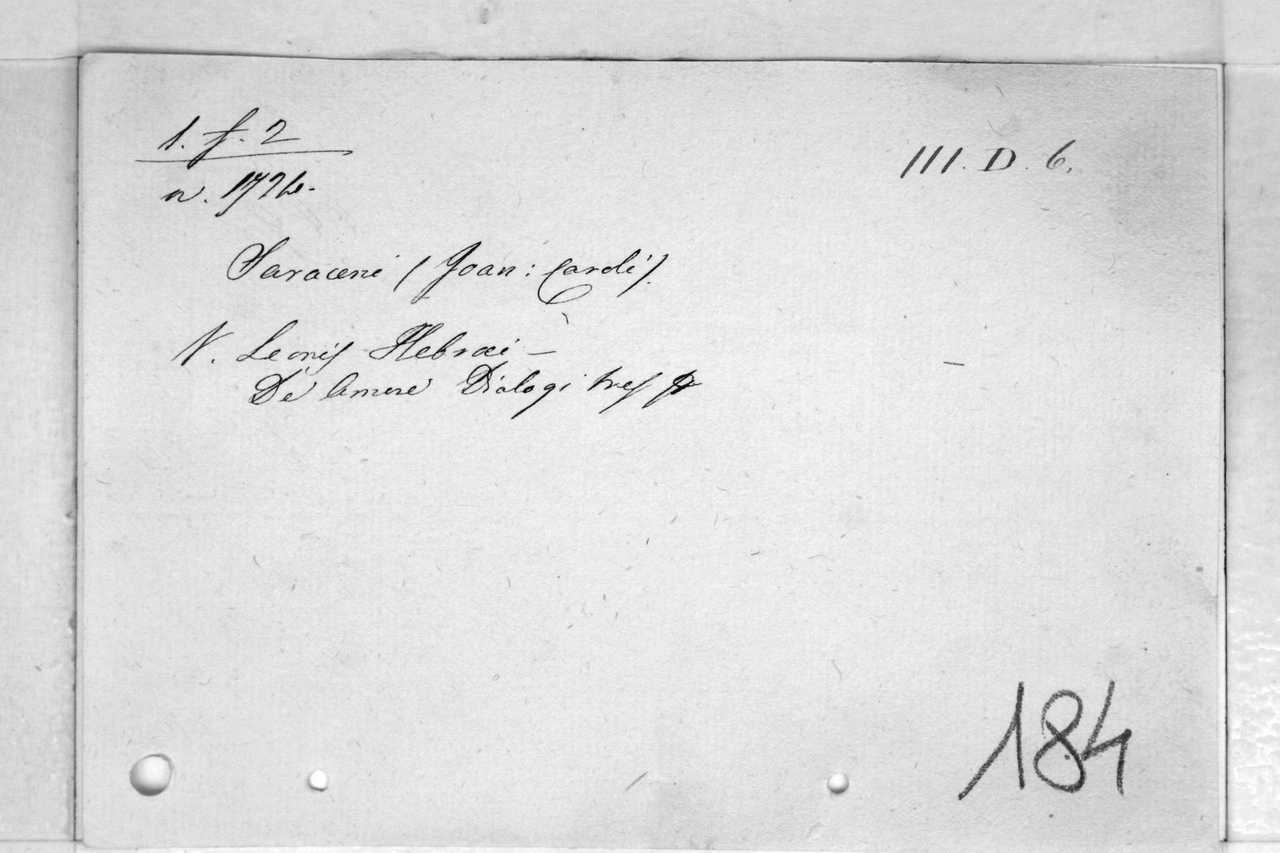 1. f. 2
III. D. 6.
n. 1726.
Saraceni (Joan: Caroli).
V. Leonis Hebraei –
De Amore Dialogi tres
184